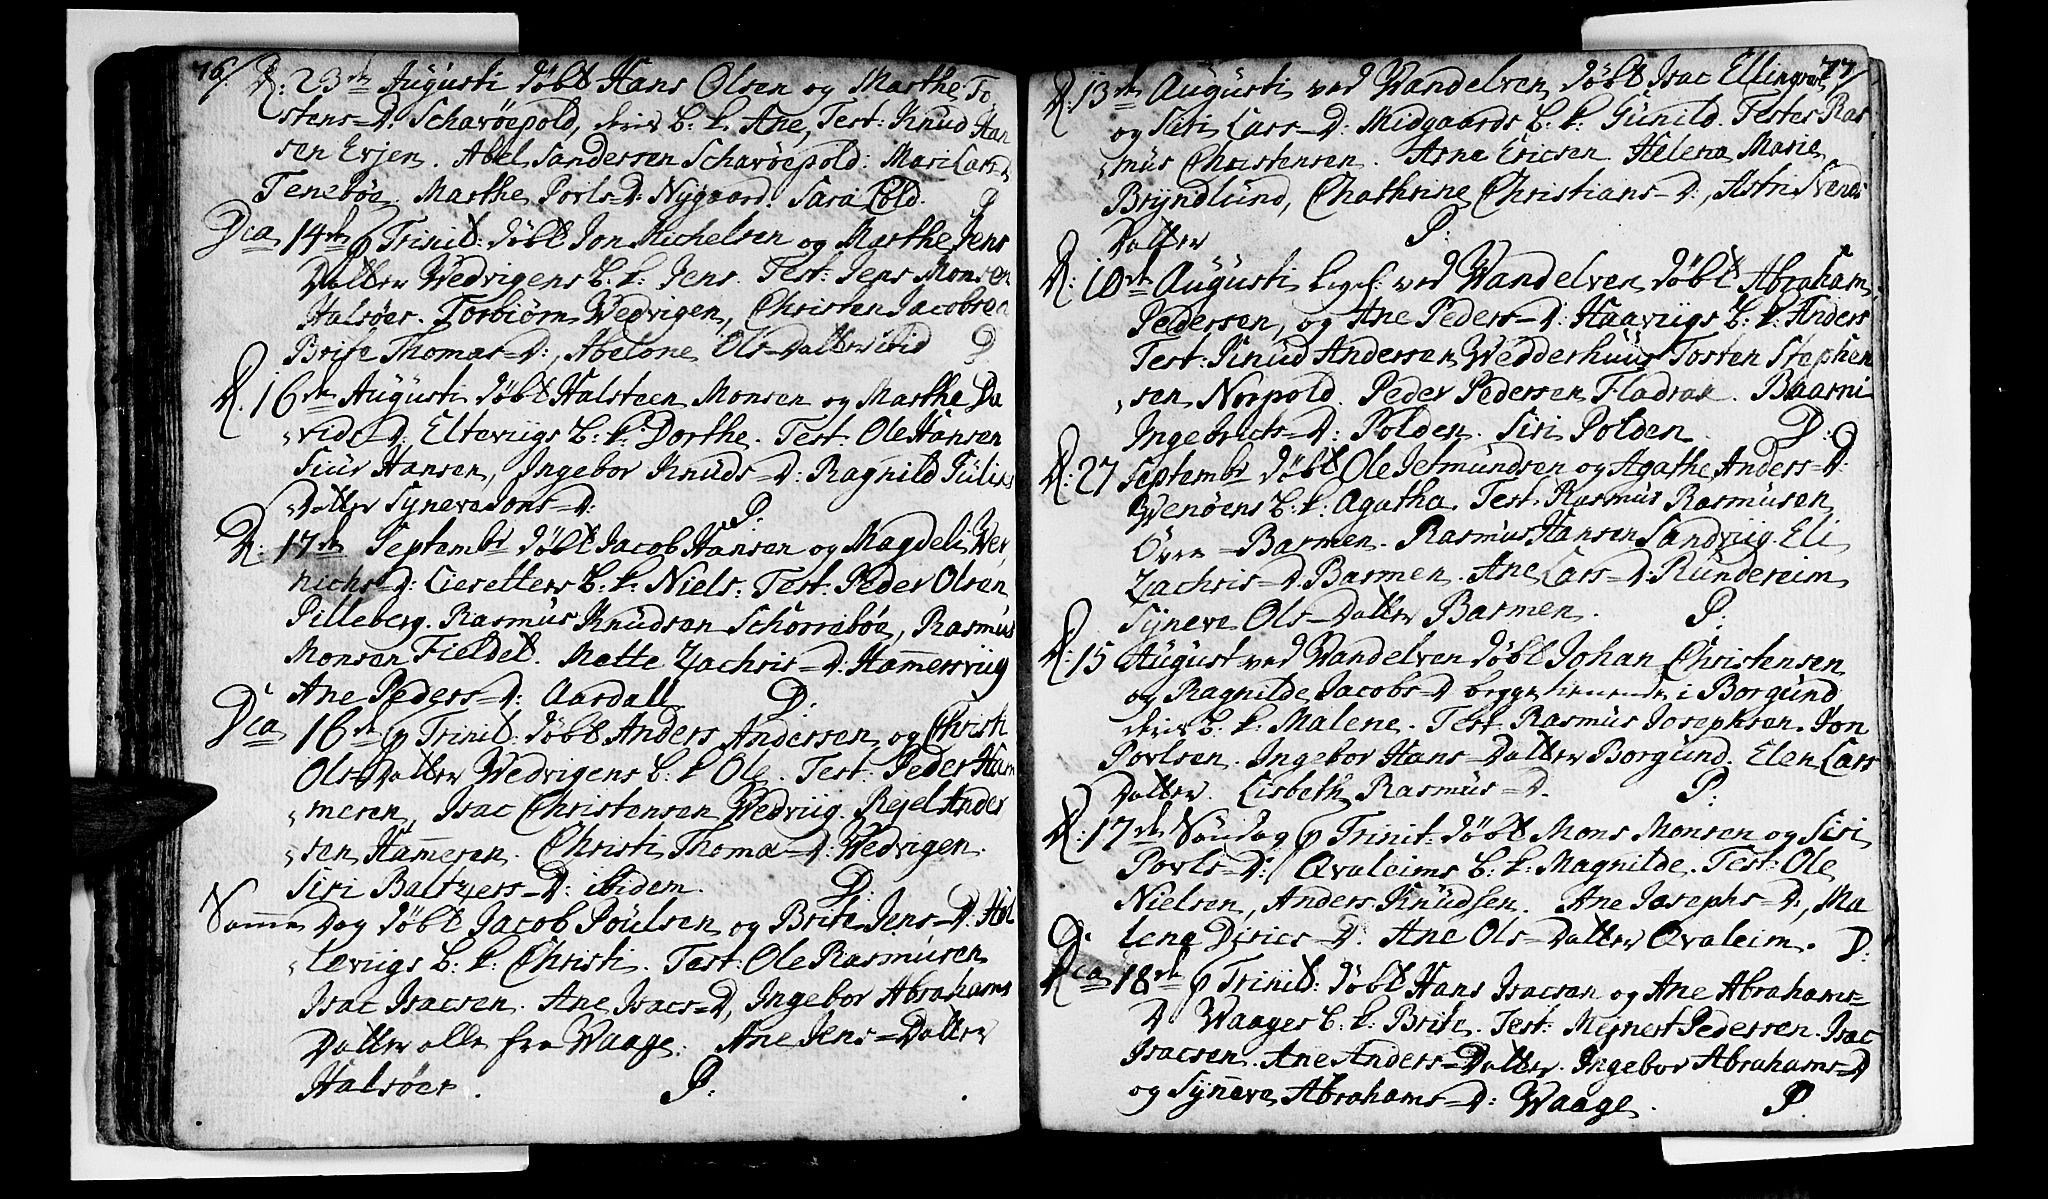 76/
D: 23de Augusti døbt Hans Olsen og Marthe To
stens=D: Scharøepold, deris b: k. Ane, Test: Knud Han
sen Erjen. Abel Sanderssen Scharøepold: Mari Lars=D
Tenebøe. Marthe Povls=D: Nygaard. Sara Cold. P
Dca 14de p Trinit: døbt Jon Michelsen og Marthe Jens
Datter Wedvigens b: k: Jens. Test: Jens Monsen
Halsøer. Torbiørn Wedvigen, Christen Jacobsen
Brite Thomas=D:, Abelone Ols=Datter ibid P
D. 16de Augusti døbt Halsteen Monsen og Marthe Da
vids=D: Eltevigs b: k: Dorthe. Test: Ole Hansen
Siur Hansen, Ingebor Knuds=D: Ragnild Gulichs
Datter Syneva Jons=D: P:
D: 17de Septembr døbt Jacob Hansen og Magdeli Wer
nichs=D: Liesetters b: k: Niels: Test: Peder Olsen
Pilleberg. Rasmus Knudsen Schorrebøe, Rasmus
Monsen Fieldet. Mette Zachris=D: Hamersviig
Ane Peders=D: Aardall P.
Dca 16de p Trinit: døbt Anders Andersen og Christi
Ols=Datter Wedvigens b: k Ole. Test: Peder Ham
meren, Isac Christensen Wedviig. Rejel Ander
sen Hameren. Christi Thomæ=D: Wedvigen.
Siri Baltzers=D: ibidem. P:
Same Dag døbt Jacob Poulsen og Brite Jens=D: Hol
levigs b: k: Christi. Test: Ole Rasmusen
Isac Isacsen. Ane Isacs=D, Ingebor Abrahams
Datter alle fra Waage. Ane Jens=Datter
Halsøer. P:
77/
D: 13de Augusti ved Wandelven døbt Isac Ellingsen
og Siri Lars=D: Midgaards b: k: Gunild. Testes Ras
mus Christensen. Arne Ericsen Helena Marie
Bryndlund, Chathrine Christians=D:, Astri Svends
Datter P:
D: 10de Augusti ved Wandelven døbt Abraham
Pedersen, og Ane Peders=D: Haavigs b: k: Anders
Test: Knud Andersen Wedderhuus Torsten Stephen
sen Norpold. Peder Pedersen Fladrak. Baarni
Ingebrichs=D: Polden. Siri Polden. P:
D: 27 Septembr døbt Ole Jetmundsen og Agathe Anders=D:
Wenøens b: k: Agatha. Test. Rasmus Rasmusen
Øvre=Barmen. Rasmus Hansen Sandviig. Eli
Zachris=D. Barmen. Ane Lars=D: Rundereim
Syneva Ols=Datter Barmen. P:
D: 15 August ved Wandelven døbt Johan Christensen
og Ragnilde Jacobs=D begge tienende i Borgund
deris b: k: Malene. Test Rasmus Josephsen. Jon
Povlsen. Ingebor Hans=Datter Borgund. Elen Lars
Datter. Lisbeth Rasmus=D. P:
D: 17de Søndag p Trinit: døbt Mons Monsen og Siri
Povls=D: Qvaleims b: k: Magnilde. Test: Ole
Nielsen, Anders Knudsen. Ane Josephs=D:, Ma
lene Dirics=D: Ane Ols=Datter Qvaleim. P:
Dca 18de p Trinit: døbt Hans Isacsen og Ane Abrahams=
D: Waages b: k: Brite. Test: Mejnert Pedersen. Isac
Isacsen. Ane Anders=Datter. Ingebor Abrahams=D
og Syneva Abrahams=D: Waage. P.